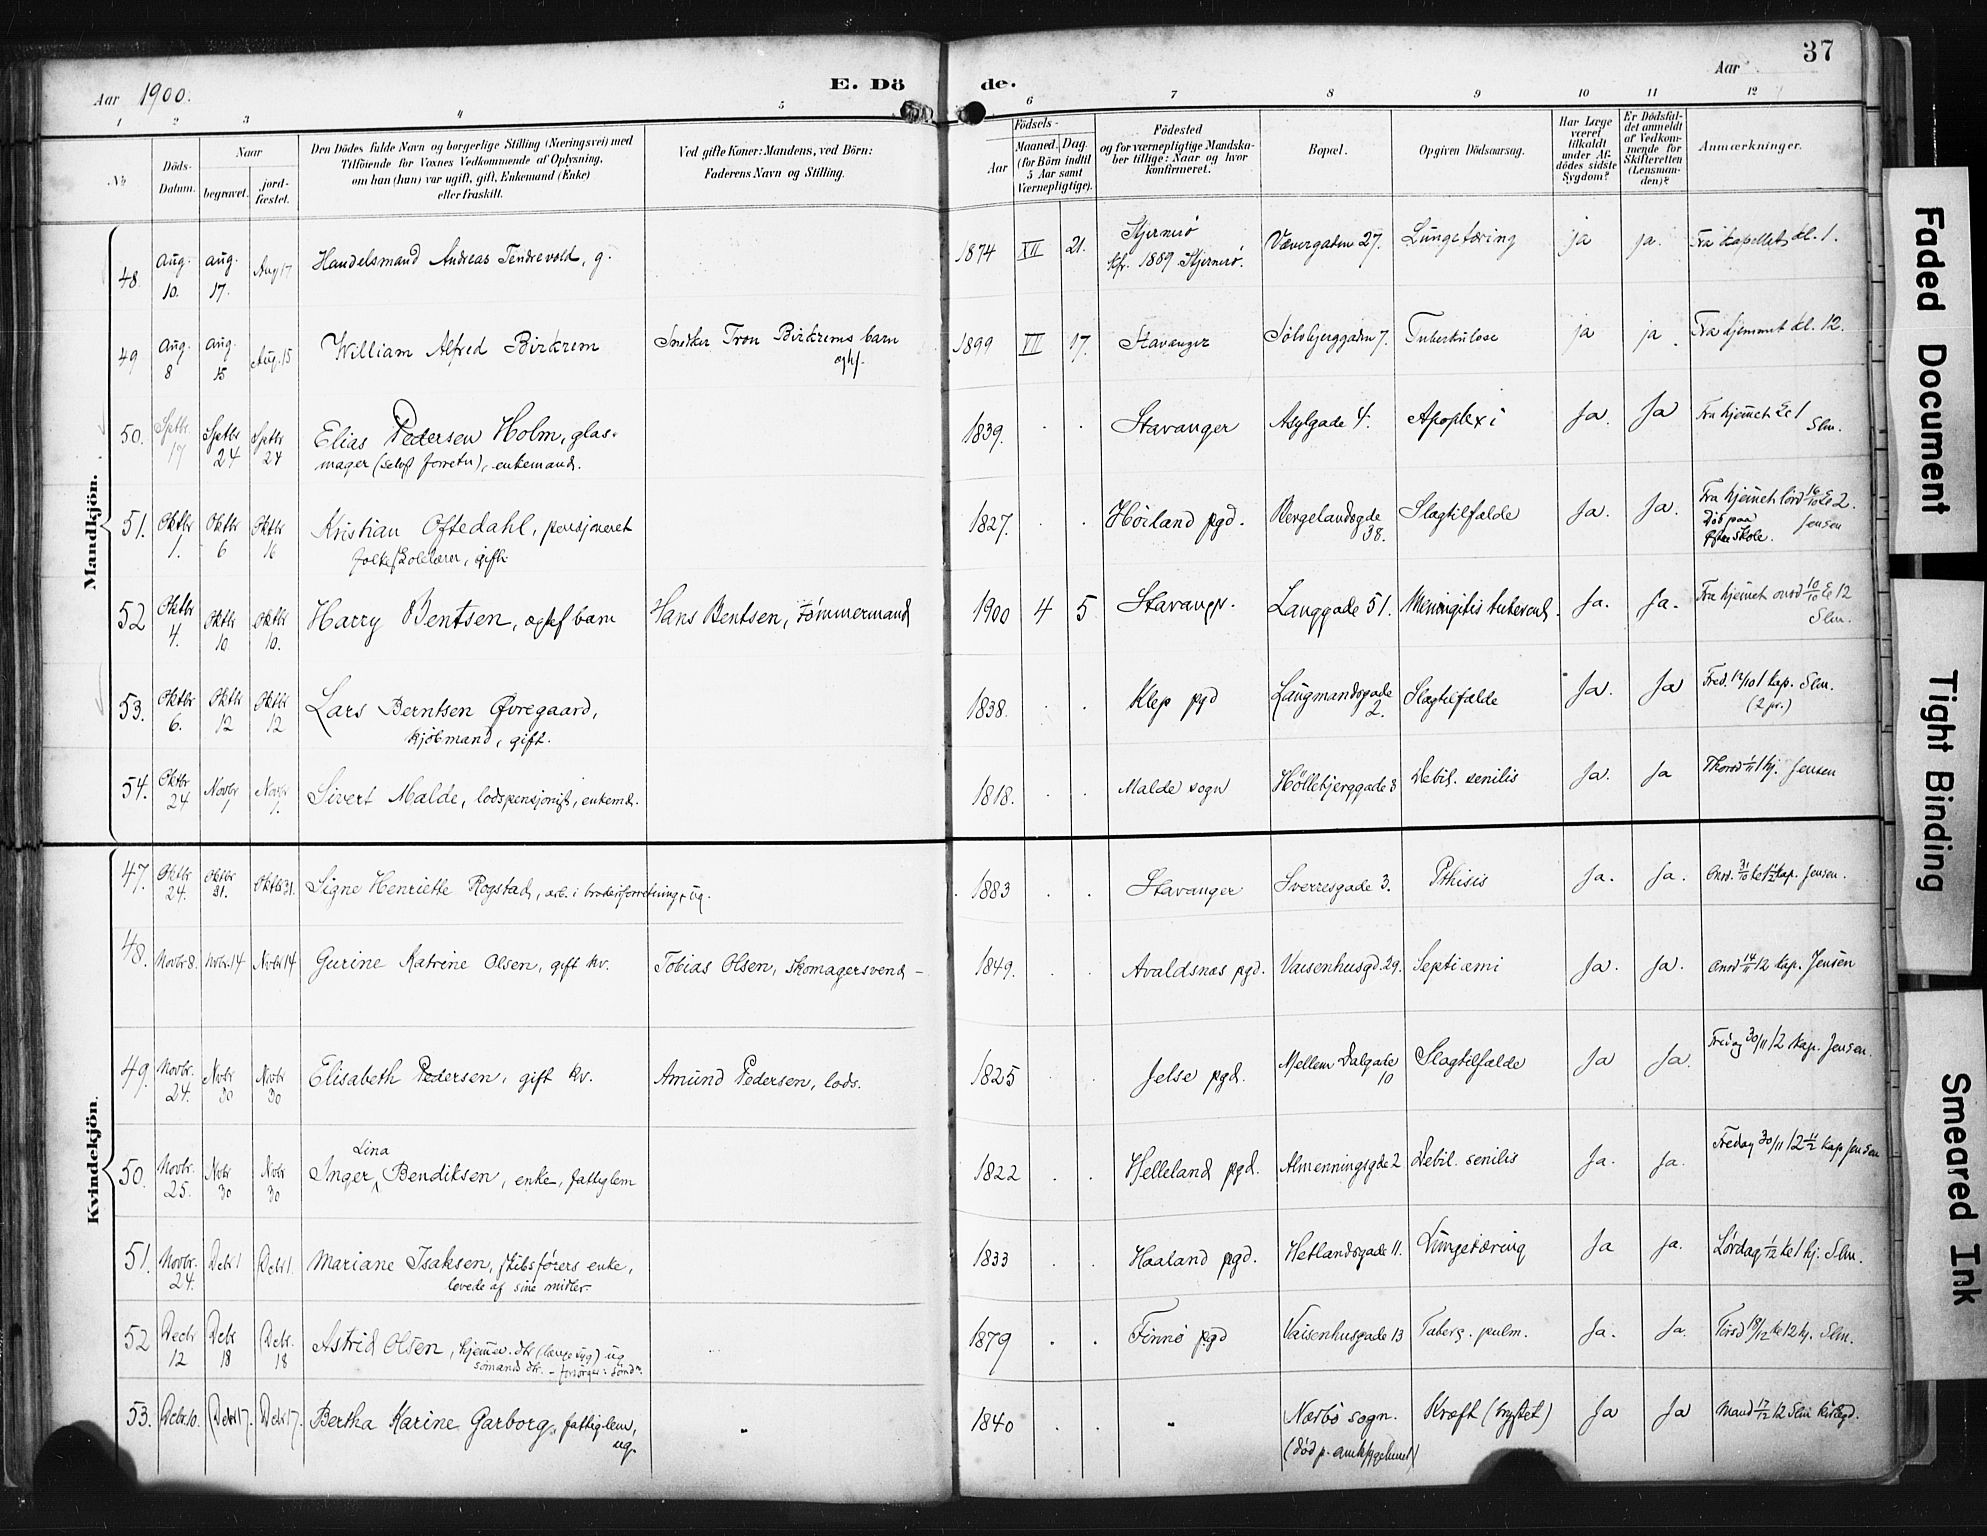 37
Aar 1900.
E. Dö de.
Aar
1 2 3 4 5 6 7 8 9 10 11 12
No
Döds-Datum.
Naar
begravet.
jord-fæstet.
Den Dödes fulde Navn og borgerlige Stilling (Næringsvei) med
Tilföiende for Voxnes Vedkommende af Oplysning,
om han (hun) var ugift, gift, Enkemand (Enke)
eller fraskilt.
Ved gifte Koner: Mandens, ved Börn:
Faderens Navn og Stilling.
Födsels-
Aar
Maaned. Dag.
(for Börn indtil
5 Aar samt
Værnepligtige).
Födested
og for værnepligtige Mandska-
ber tillige: Naar og hvor
konfirmeret.
Bopæl.
Opgiven Dödsaarsag.
Har Læge
været
tilkaldt
under Af-
dödes sidste
Sygdom?
Er Dödsfal-
det anmeldt
af Vedkom-
mende for
Skifteretten
(Lensman-
den)?
Anmærkninger.
Mandkjön.
48. Aug. 10. Aug. 17. Aug 17 Handelsmand Andreas Tendrevold, g. 1874 VII 21. Hjermerö kfr. 1889 Hjermerö. Vævergaden 27. Lungetæring ja ja. Fra kapellet kl. 1.
49 Aug 8 Aug. 15 Aug. 15 William Alfred Birkrem Snedker Tron Birkrems barn 1899 VII 17. Stavanger Sölvbjerggaden 7. Tuberkulose ja ja. Fra hjemmet kl. 12.
50. Septbr 17 Septbr 24 Septbr 24 Elias Pedersen Holm, glas-
mager (selvst forretn), enkemand. 1839. Stavanger Asylgade 4. Apoplexi Ja. Ja Fra hjemmet 1 Slm.
51. Oktbr 1. Oktbr 6 Oktbr 6 Kristian Oftedahl, pensjoneret
folkeskolelærer, gift 1827. Höiland pgd. Bergelandsgde 38. Slagtilfælde Ja. Ja. Fra hjemmet 2. Jensen
52 Oktbr 4. Oktbr 10 Oktbr 10. Harry Bentsen, ægtef barn Hans Bentsen, tömmermand 1900 4 5 Stavangr. Langgade 51. Meningitis tubercul. Ja. Ja. Fra hjemmet onsd 10/10 12 Slm.
53. Oktbr 6. Oktbr 12 Oktbr 12 Lars Berntsen Övregaard,
kjöbmand, gift. 1838. Klep pgd Laugmandsgade 2. Slagtilfælde Ja. Ja Fred. 12/10 1 kap. Slm.
(2 pr.)
54. Oktbr 24 Novbr 1 Novbr 1. Sivert Malde, lodspensjonist, enkemd. 1818. Malde sogn Höllebjerggade 8 Debil. senilis Ja. Ja Thorsd 1/11 1 hj. Jensen
Kvindekjön.
47. Oktbr 24. Oktbr 31. Oktbr 31. Signe Henriette Rogstad, arb. i broderiforretning, ug. 1883 Stavanger Sverresgade 3. Pthisis Ja. Ja. Onsd. 31/10 kap. Jensen.
48. Novbr 8. Novbr. 14 Novbr 14 Gurine Katrine Olsen, gift kv. Tobias Olsen, skomagersvend - 1849. Avaldsnæs pgd. Vaisenhusgd. 29. Septicæmi Ja. Ja. Onsd 14/11 12 kap. Jensen
49. Novbr. 24. Novbr 30 Novbr 30 Elisabeth Pedersen, gift kv. Amund Pedersen, lods. 1825 Jelse pgd. Mellem Dalgade 10 Slagtilfælde Ja Ja. Fredag 30/11 12 kap. Jensen.
50. Novbr. 25. Novbr 30 Novbr 30 Inger Lina Bendiksen, enke, fattiglem 1822 Helleland pgd. Almenningsgde 2 Debil. senilis Ja. Ja. Fredag 30/11 12 1/2 kap Jensen
51. Novbr. 24. Debr 1 Debr 1. Mariane Isaksen, skibsförers enke,
levede af sine midler. 1833 Haaland pgd. Hetlandsgade 11. Lungetæring Ja Ja. Lördag 1/12 kl 1 hj. Slm.
52 Decbr 12 Debr 18 Debr. 18 Astrid Olsen, hjemmev. dtr (længe syg) ug
sömands dtr. 1879 Finnö pgd Vaisenhusgade 13 Taberc. pulm. Ja. Ja. Tirsd 18/12 kl 12 hj. Slm.
53. Debr 10. Debr 17. Debr 17. Bertha Karine Garborg, fattiglem,
ug. 1840 Nærbö sogn.
(död p. amtssygehuset) Kræft (brystet) Ja Ja Mand 17/12 12 Slm kirkegd.
Faded Document
Tight Binding
Smeared Ink